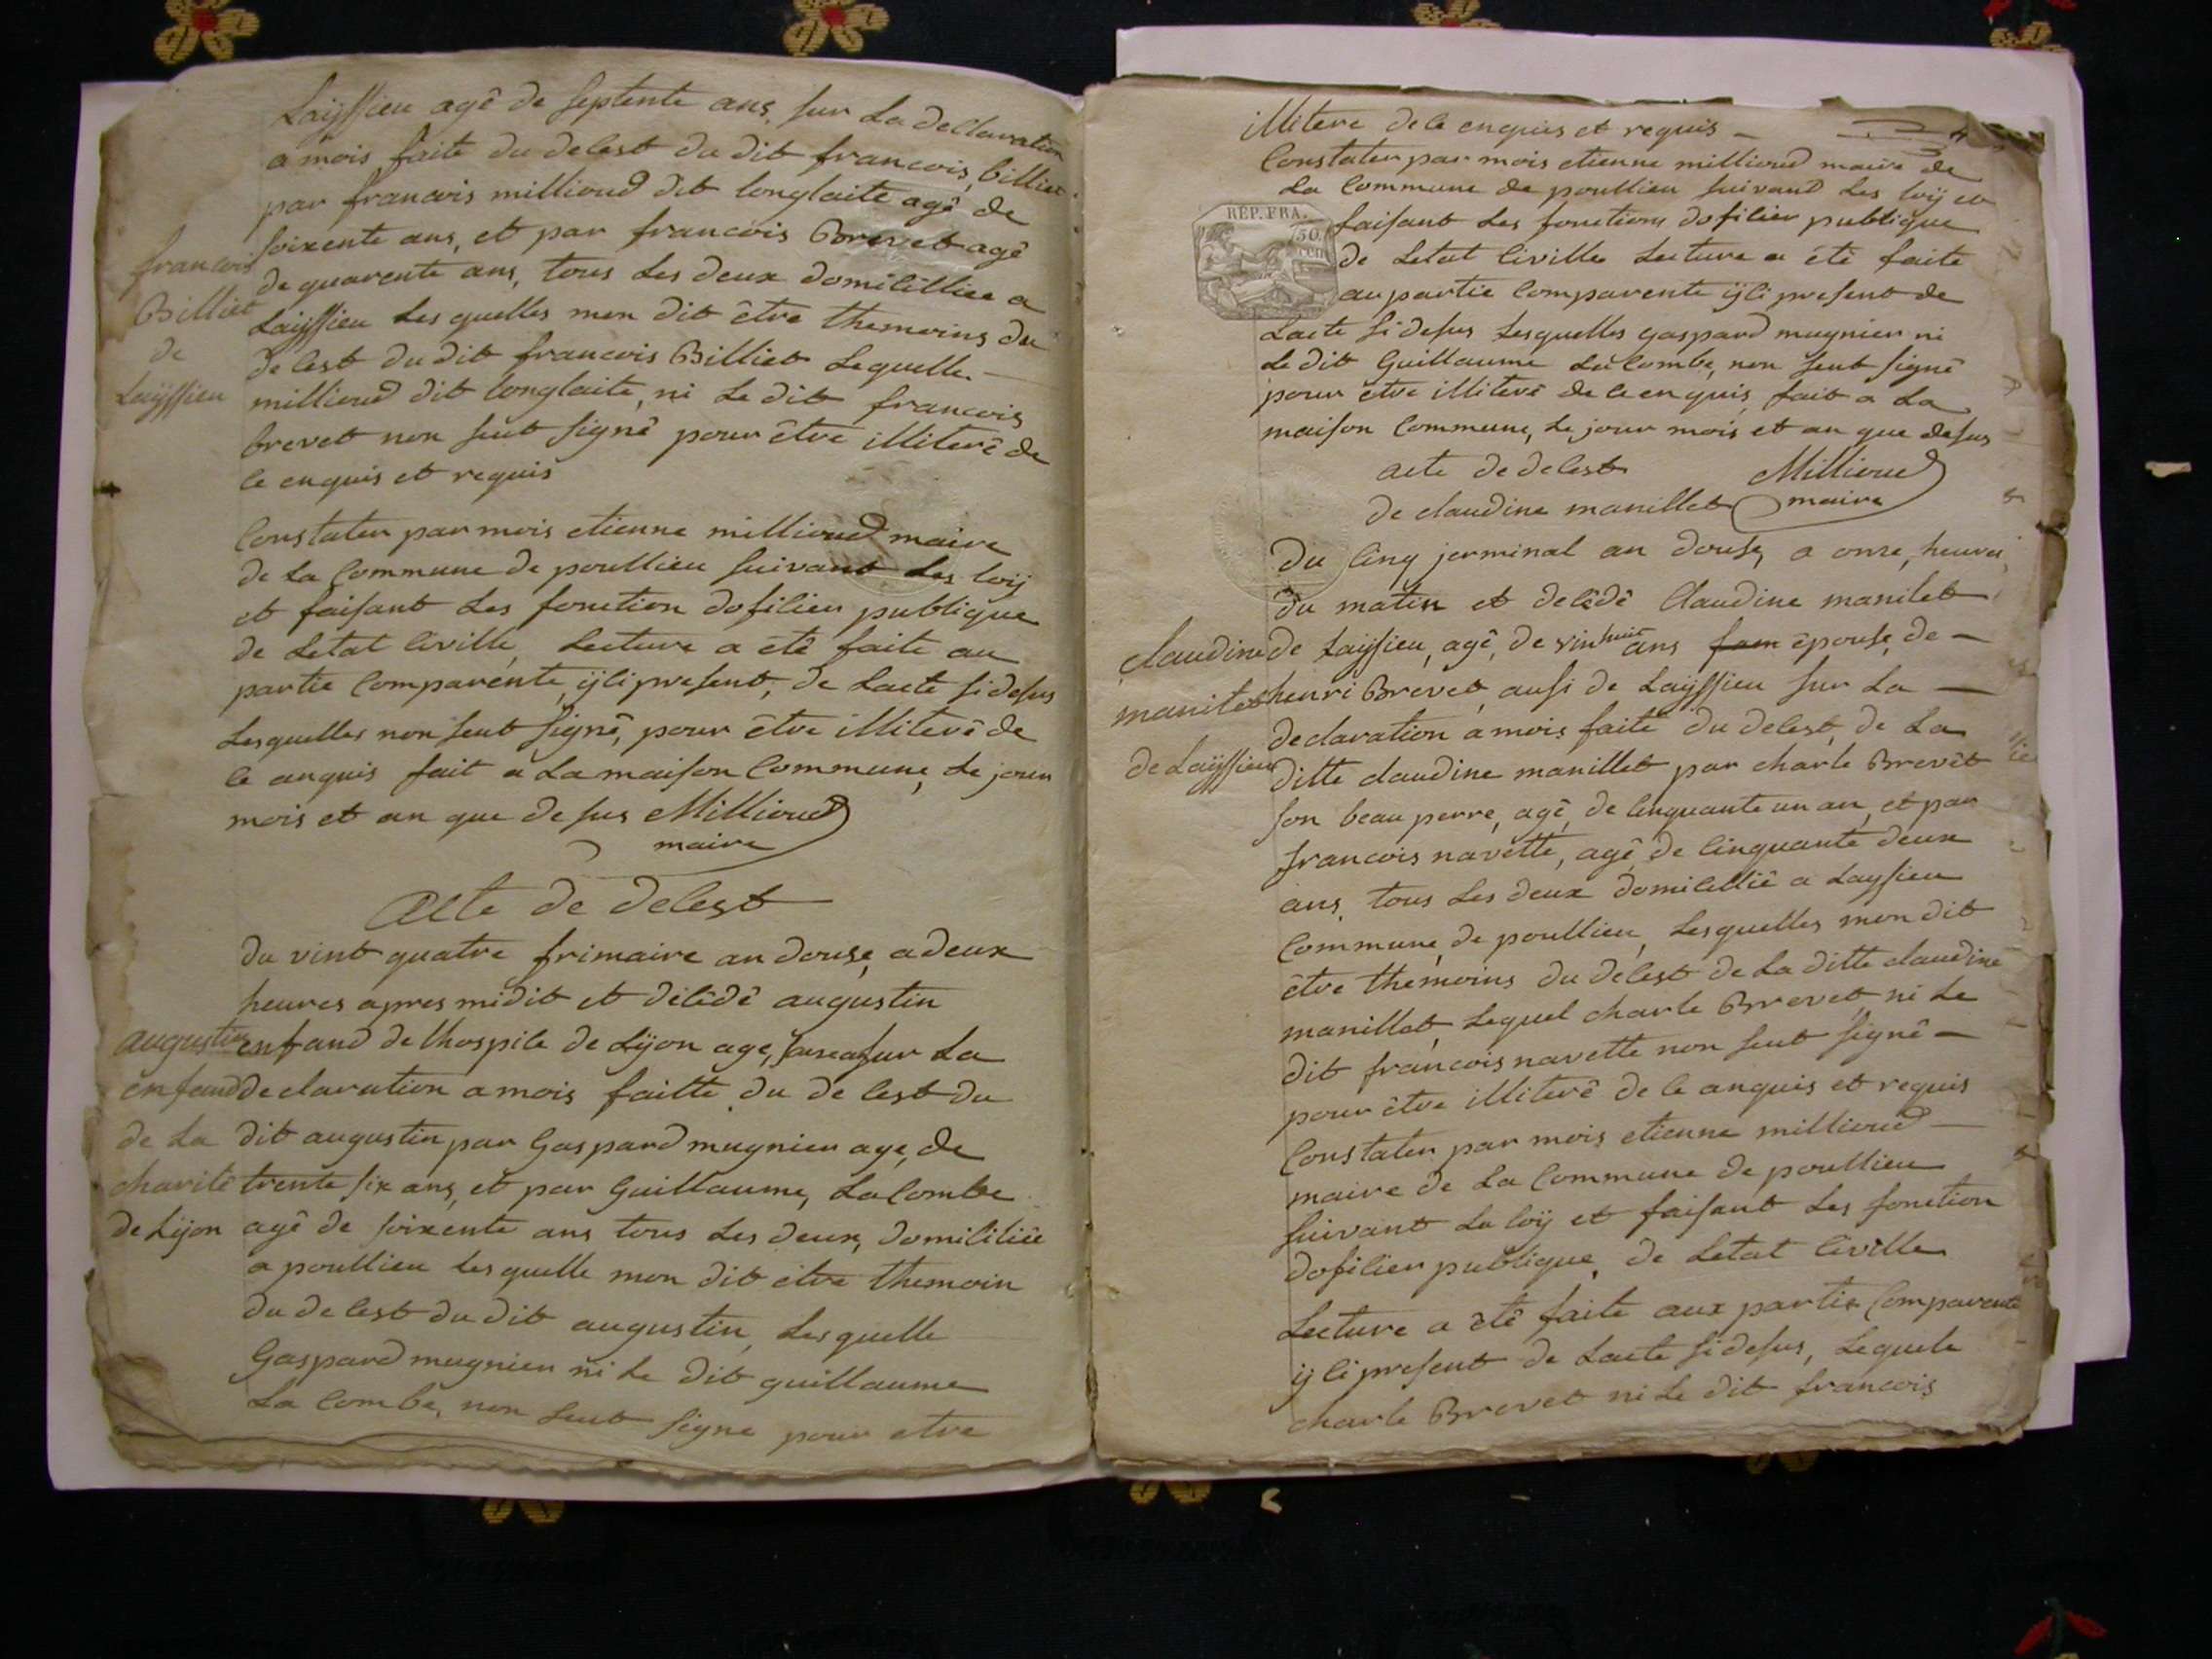 Laÿssieu agê de septente ans, sur La declaration
a mois faite du delest du dit francois, billiet
par francois millioud dit longlaite agê de
soixente ans, et par francois Brevet agê
de quarente ans, tous Les deux domicilliee a
Laÿssieu Les quelles mon dit être themoins du
de lest du dit francois Billiet Lequelle
millioud dit longlaite, ni Le dit francois
brevet non seut signê pour être illiterê de
ce enquis et requis
francois
Billiet
de
Laÿssieu
Constater par mois etienne millioud maire
de La Commune de poullieu suivant Les loÿ
et faisant Les fonction dofilier publique
de Letat Civille, Lecture a étê faite au
partie Comparente, ÿli present, de Lacte si desus
Lesquelles non seut signê, pour être illiterê de
ce anquis fait a La maison Commune, Le jour
mois et an que de sus Millioud
maire
Acte de delest
du vint quatre frimaire an douse, a deux
heures apres midit et delêdê augustin
enfand de lhospice de Lÿon age, sur La
declaration a mois faitte du de lest du
dit augustin par Gaspard mugnier age, de
trente six ans, et par Guillaume, La Combe
agê de soixente ans tous Les deux, domiciliée
a poullieu Les quelle mon dit être themoin
du de lest du dit augustin, Les quelle
Gaspard mugnier ni Le dit guillaume
La Combe, non seut signe pour etre
augustin
enfand
de La
charitê
de Lÿon
illitere de ce enquis et requis
Constater par mois etienne millioud maire de
La Commune de poullieu suivant Les loÿ et
faisant Les fonctions dofilier publique
de Letat Civille Lecture a étê faite
au partie Comparente ÿli present de
Lacte si desus Lesquelles gaspard mugnier ni
Le dit Guillaume La Combe, non seut signê
pour être illiterê de ce enquis, fait a La
maison Commune, Le jour mois et an que desus
RÉP. FRA.
50.
cen
acte de delest Millioud
de claudine manillet maire
Du Cinq jerminal an douse, a onze, heures
du matin et delêdê Claudine manilet
de Laÿsieu, agê, de vint huit ans épouse, de
henri Brevet, ausi de Laÿssieu sur La
declaration a mois faite du delest, de La
ditte claudine manillet par charle Brevêt
son beau perre, agê, de Cinquante un an, et par
francois navette, agê, de Cinquante deux
ans, tous Les deux domiciliê a Laysieu
Commune, de poullieu, Lesquelles mon dit
être themoins du delest de La ditte claudine
manillet, Lequel charle Brevet, ni Le
dit francois navette non seut signê
pour être illiterê de ce anquis et requis
Constater par mois etienne millioud
maire de La Commune de poullieu
suivant La loÿ et faisant Les fonction
dofilier publique, de Letat Civille
Lecture a êtê faite aux partie Comparente
ÿ li present de Lacte si desus, Lequele
charle Brevet ni Le dit francois
claudine
manilet
de Laÿssieu